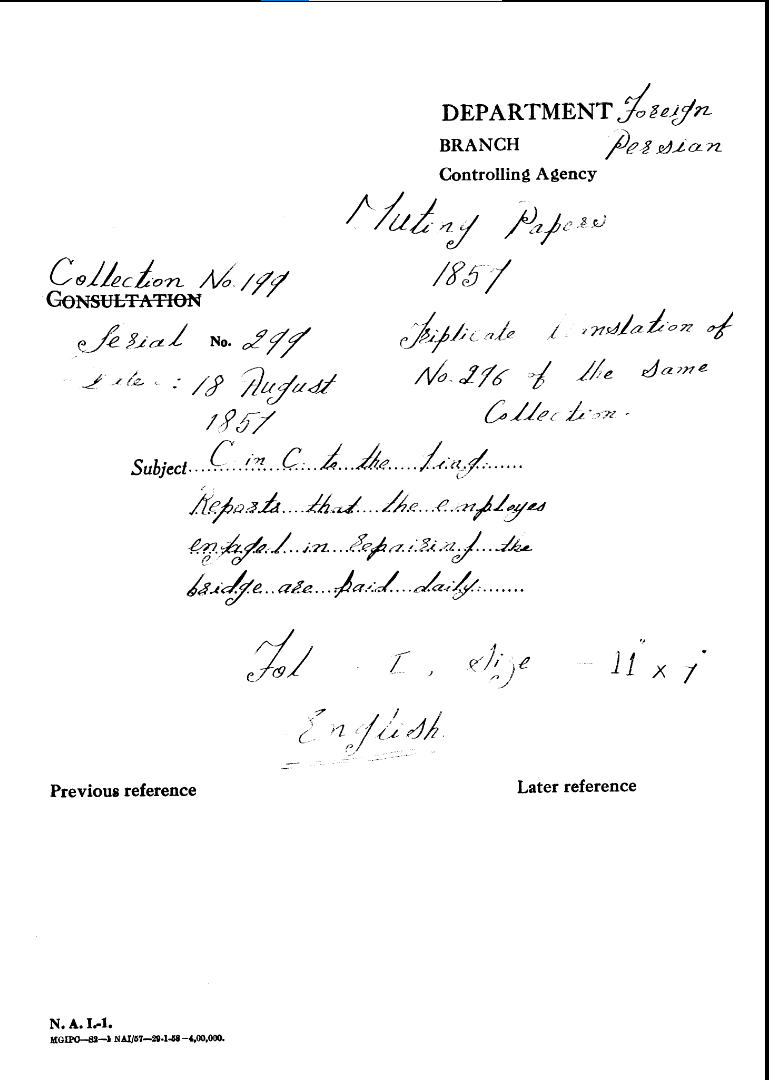 DEPARTMENT Foreign
BRANCH Persian
Controlling Agency
Mutiny Papers
1857
Collection No. 199
CONSULTATION
Serial No. 299
Triplicate translation of
No. 296 of the same
Collection.
Date : 18 August
1857
Subject C in C to the King
Reports that the employes
engaged in repairing the
bridge are paid daily
Fol - I, Size - 11" x 7"
English
Previous reference
Later reference
N. A. I.-1.
MGIPC—82—1 NAI/57—29-1-58—4,00,000.